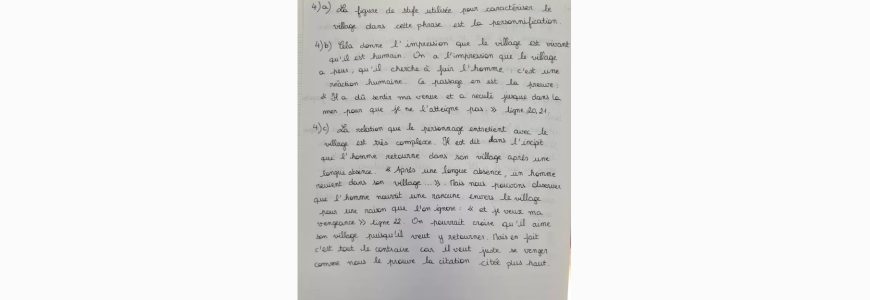 4)a) La figure de style utilisée pour caractériser le
village dans cette phrase est la personnification.
4)b) Cela donne l'impression que le village est vivant
qu'il est humain. On a l'impression que le village
a peur, qu'il cherche à fuir l'homme c'est une
réaction humaine. Ce passage en est la preuve:
« Il a dû sentir ma venue et a reculé jusque dans la
mer pour que je ne l'atteigne pas. » ligne 20,21.
4)c) La relation que le personnage entretient avec le
village est très complexe. Il est dit dans l'incipit
que l'homme retourne dans son village après une
longue absence. « Après une longue absence, un homme
revient dans son village ... ». Mais nous pouvons observer
que l'homme nourrit une rancune envers le village
pour une raison que l'on ignore: « et je veux ma
vengeance » ligne 22. On pourrait croire qu'il aime
son village puisqu'il veut y retourner. Mais en fait
c'est tout le contraire car il veut juste se venger
comme nous le prouve la citation citée plus haut.